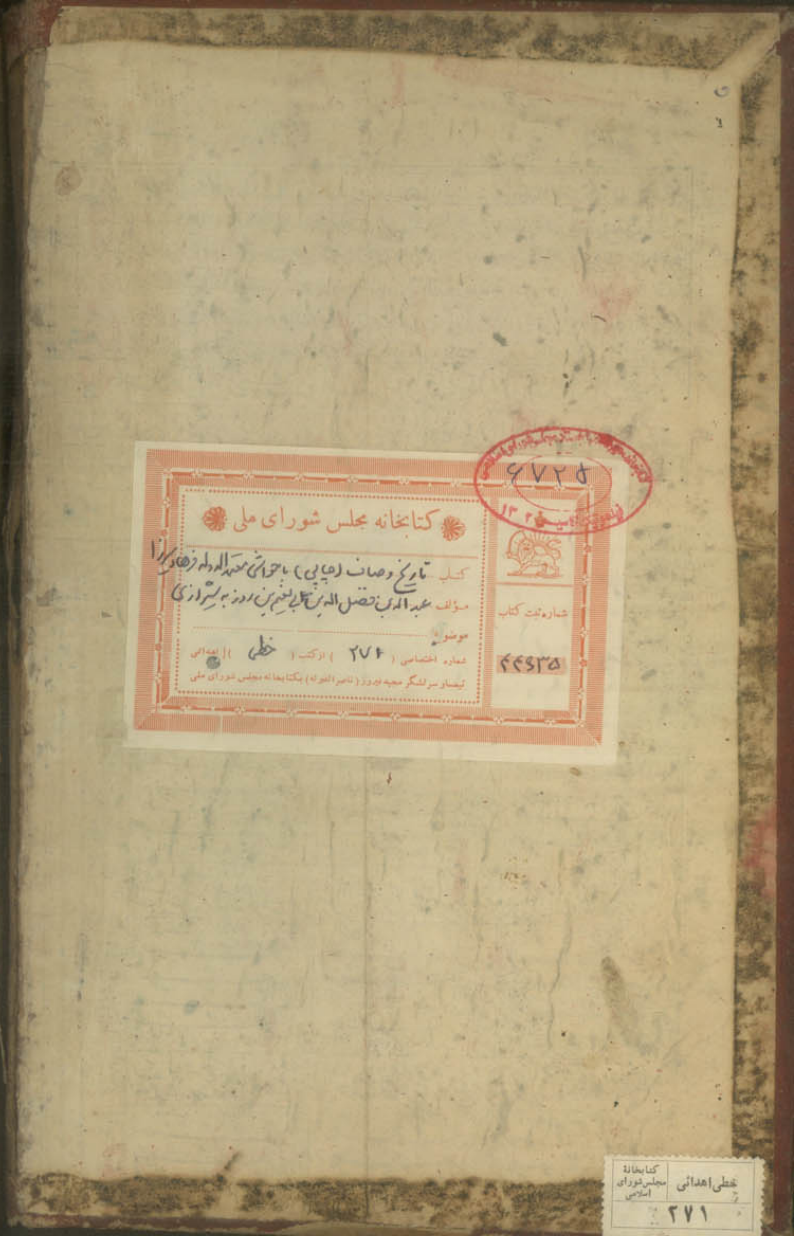 ۶۷۲۵
۱۳۰۲
کتابخانه مجلس شورای ملی
کتاب تاریخ وصاف (چاپی) با حواشی معتمدالدوله فرهاد میرزا
مؤلف عبدالله بن فضل الله بن ابی نعیم بن روزبه شیرازی
موضوع
شماره اختصاصی ( ۲۷۱ ) از کتب ( خطی ) اهدائی
تیمسار سرلشگر مجید فیروز (ناصرالدوله) بکتابخانه مجلس شورای ملی
شماره ثبت کتاب
۴۴۹۳۵
کتابخانهٔ
مجلس شورای
اسلامی
خطی اهدائی
۲۷۱